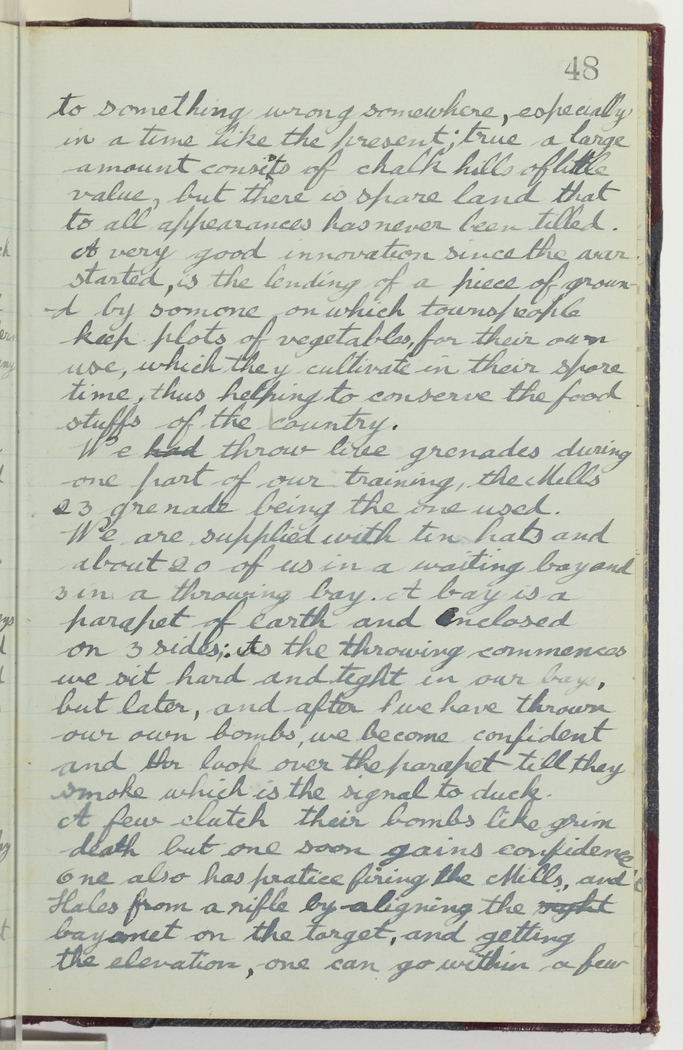 48
to something wrong somewhere, especially
in a time like the present; true a large
amount consits of chalk hills of little
value, but there is spare land that
to all appearances has never been tilled.
A very good innovation since the war
started, is the lending of a piece of groun-
-d by somone on which townspeople
keep plots of vegetables, for their own
use, which they cultivate in their spare
time, thus helping to conserve the food
stuffs of the country.
We had throw live grenades during
one part of our training, the Mills
23 grenade being the one used.
We are supplied with tin hats and
about 20 of us in a waiting bay and
3 in a throwing bay. A bay is a
parapet of earth and enclosed
on 3 sides; As the throwing commences
we sit hard and tight in our bays,
but later, and after we have thrown
our own bombs, we become confident
and look over the parapet till they
smoke which is the signal to duck.
A few clutch their bombs like grim
death but one soon gains confidence
One also has pratice firing the Mills, and
Hales from a rifle by aligning the sight
bayonet on the target, and getting
the elevation, one can go within a few